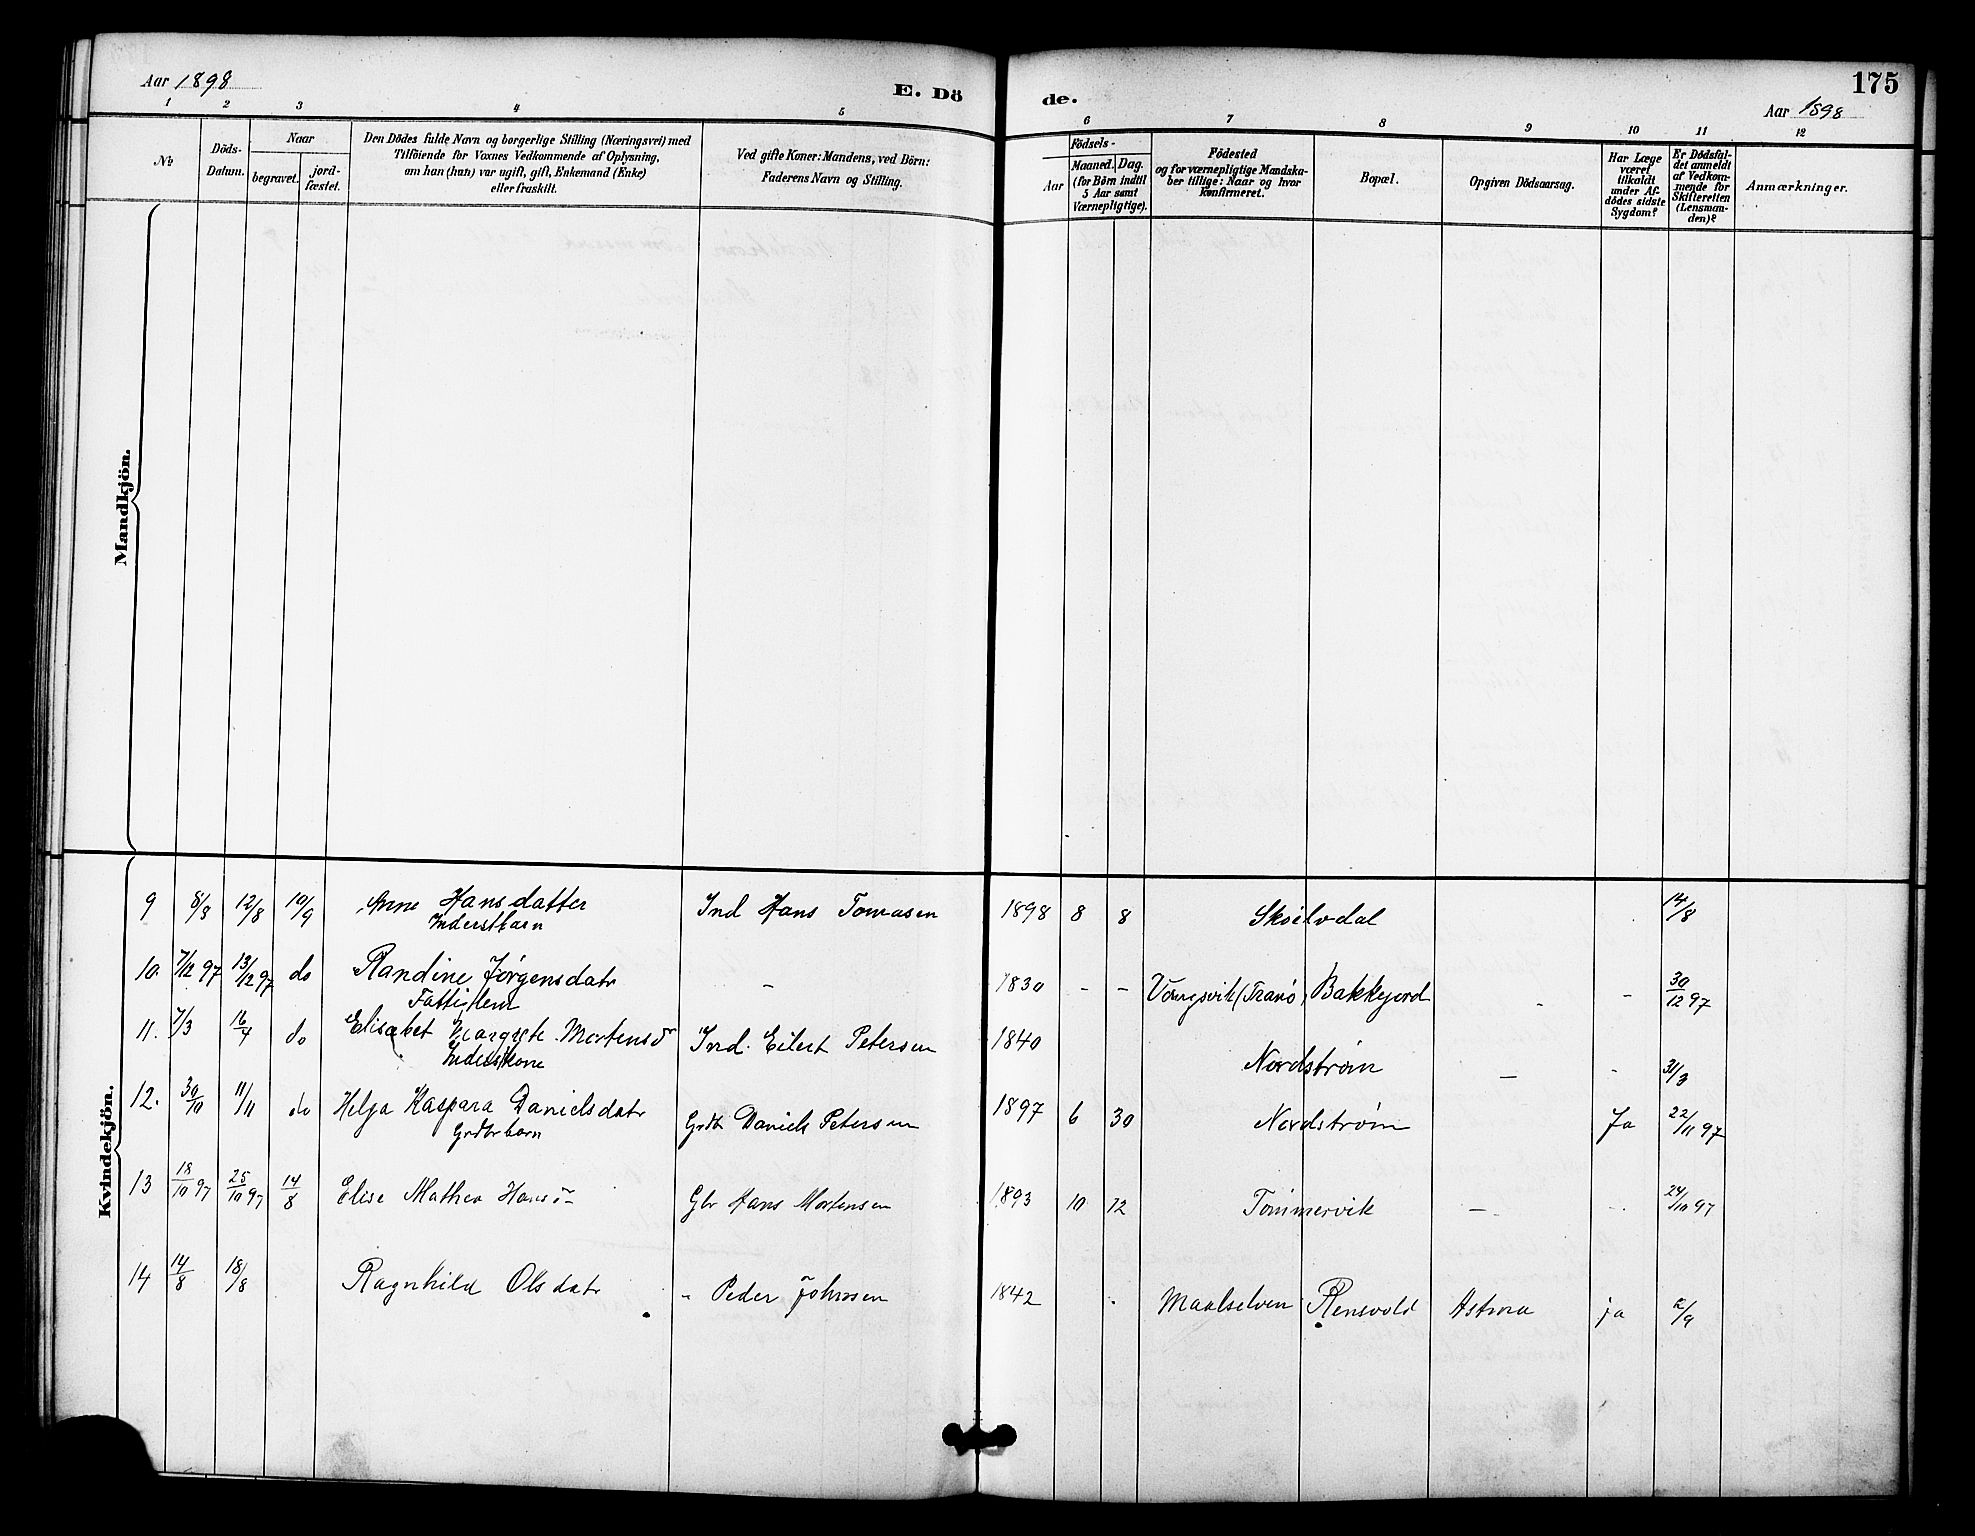 Aar 1898
E. Dö
de.
175
Aar 1898
1 2 3 4 5 6 7 8 9 10 11 12
No
Döds-
Datum.
Naar
begravet.
jord-
fæstet.
Den Dödes fulde Navn og borgerlige Stilling (Næringsvei) med
Tilföiende for Voxnes Vedkommende af Oplysning,
om han (hun) var ugift, gift, Enkemand (Enke)
eller fraskilt.
Ved gifte Koner: Mandens, ved Börn:
Faderens Navn og Stilling.
Födsels-
Aar
Maaned.
Dag.
(for Börn indtil
5 Aar samt
Værnepligtige).
Födested
og for værnepligtige Mandska-
ber tillige: Naar og hvor
konfirmeret.
Bopæl.
Opgiven Dödsaarsag.
Har Læge
været
tilkaldt
under Af-
dödes sidste
Sygdom?
Er Dödsfal-
det anmeldt
af Vedkom-
mende for
Skifteretten
(Lensman-
den)?
Anmærkninger.
Mandkjön.
Kvindekjön.
9 8/8 12/8 10/9 Anne Hansdatter Ind Hans Tomasen 1898 8 8 Skøelvdal 14/8
Inderstbarn
10. 7/12 97 13/12 97 do Randine Jørgensdatr - 1830 - - (Tranø) Bakkejord - - 30/12 97
Fattiglem
11. 7/3 16/4 do Elisabet Margrete Mortensd Ind. Eilert Petersen 1840 Nordstrøm - - 31/3
Inderstkone
12. 30/10 11/11 do Helga Kaspara Danielsdatr Grdbr Daniel Petersen 1897 6 30 Nordstrøm Ja 22/11 97
Grdbrbarn
13 18/10 97 25/10 97 14/8 Elise Mathea Hansd Gbr Hans Mortensen 1893 10 12 Tømmervik - - 24/10 97
14 14/8 18/8 Ragnhild Olsdatr " Peder Johnsen 1842 Maalselven Rensvold Astma ja 2/9